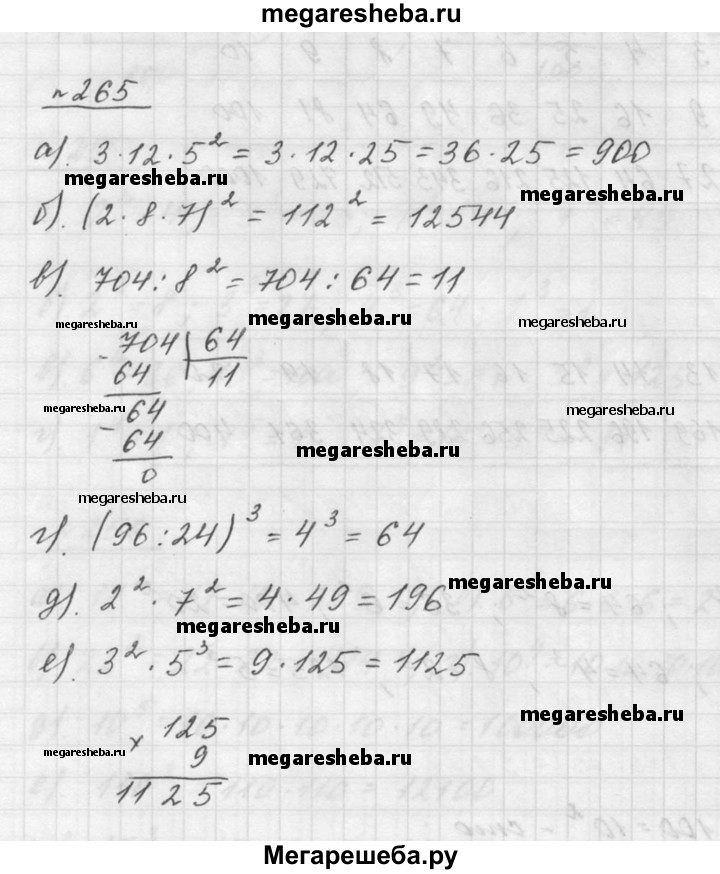 megaresheba.ru
№265
а). 3·12·5² = 3·12·25 = 36·25 = 900
megaresheba.ru
megaresheba.ru
б). (2·8·7)² = 112² = 12544
в). 704:8² = 704:64 = 11
megaresheba.ru megaresheba.ru megaresheba.ru
- 704 | 64
64 11
megaresheba.ru 64 megaresheba.ru
- 64 megaresheba.ru
0
megaresheba.ru
г). (96:24)³ = 4³ = 64
д). 2²·7² = 4·49 = 196 megaresheba.ru
megaresheba.ru
е). 3²·5³ = 9·125 = 1125
megaresheba.ru
× 125
megaresheba.ru 9 megaresheba.ru
1125
Мегарешеба.ру